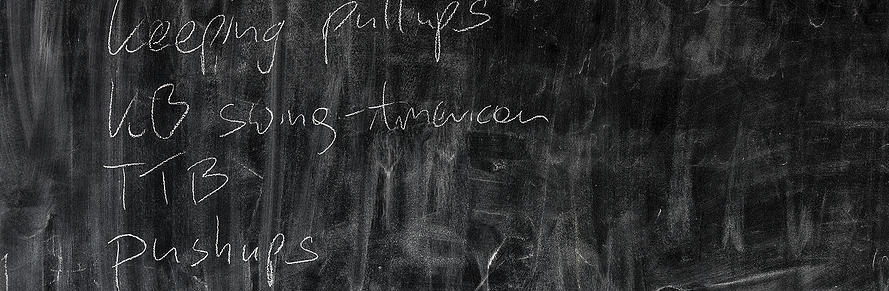 keeping pullups
KB swing-American
TTB
pushups